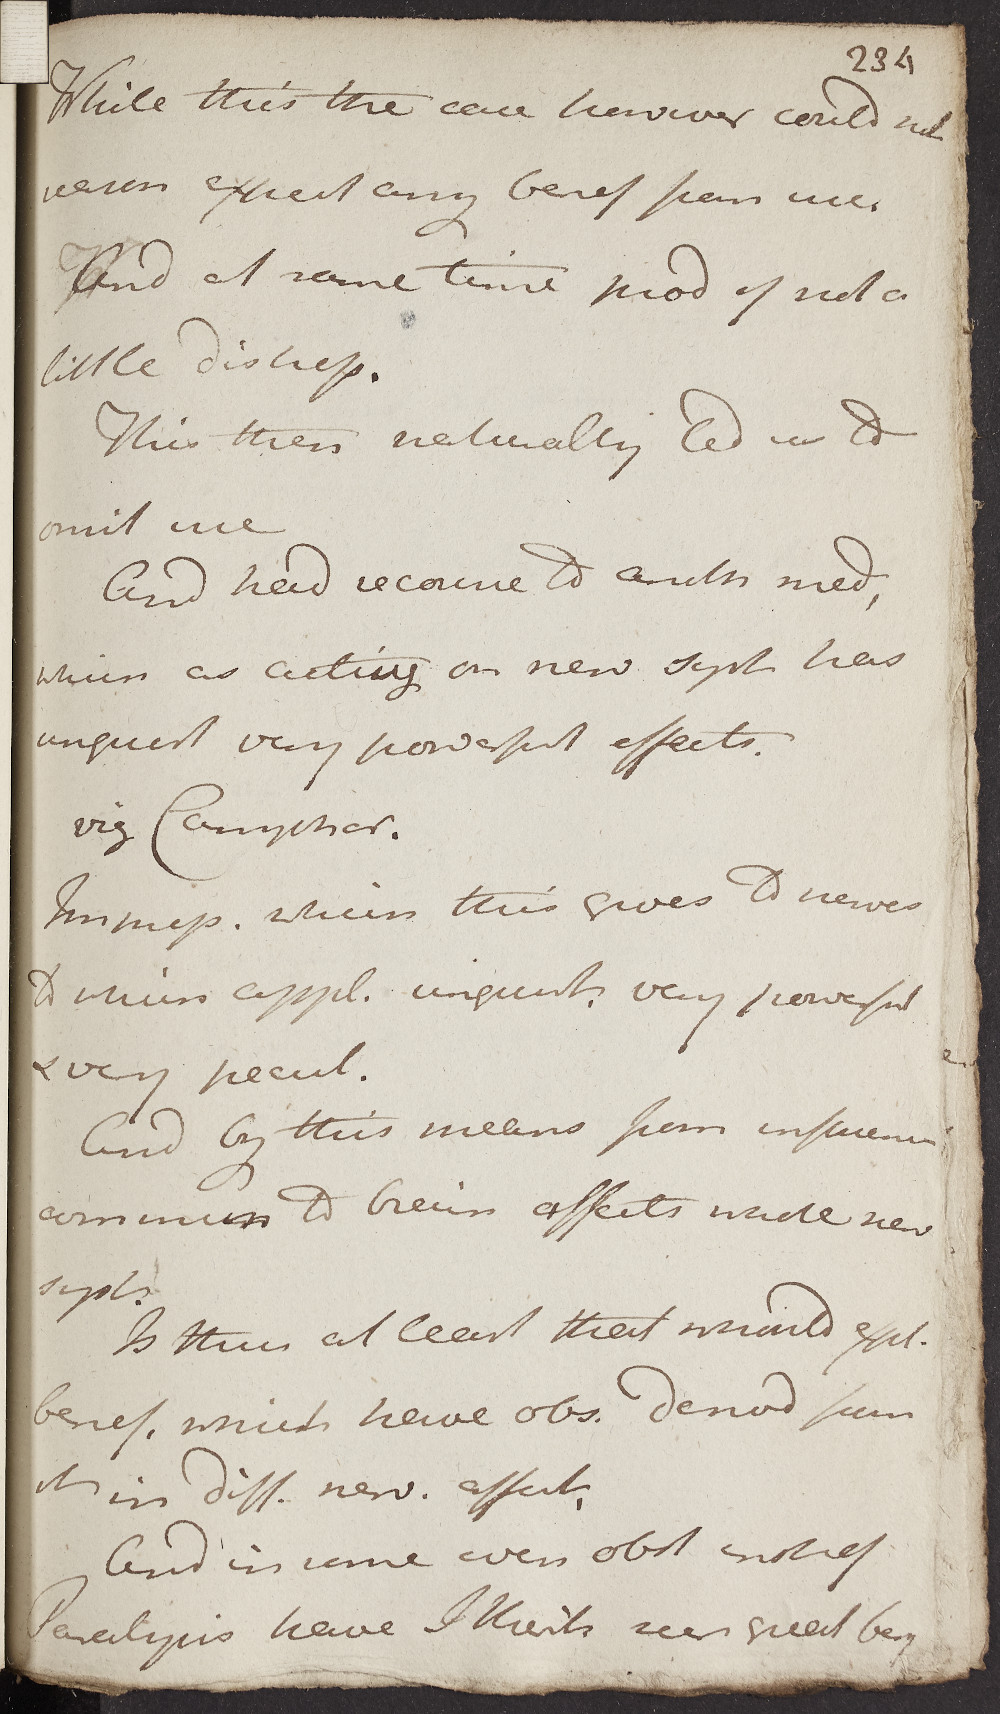 234
While this the case however could not
reason expect any benef from use.
And at same time prod of not a
little distress.
This then naturally led us to
omit use
And had recourse to anoth med,
which as acting on nerv syst has
unquest very powerful effects.
viz Camphor.
Impress. which this gives to nerves
to which appl. unquest. very powerful
& very pecul.
And by this means from influence
commun to brain affects whole nerv
syst.
Is thus at least that should expl.
benef. which have obs. derivd from
it in diff. nerv. affect.
And in some even obst cases of
Paralysis have I think seen great benef